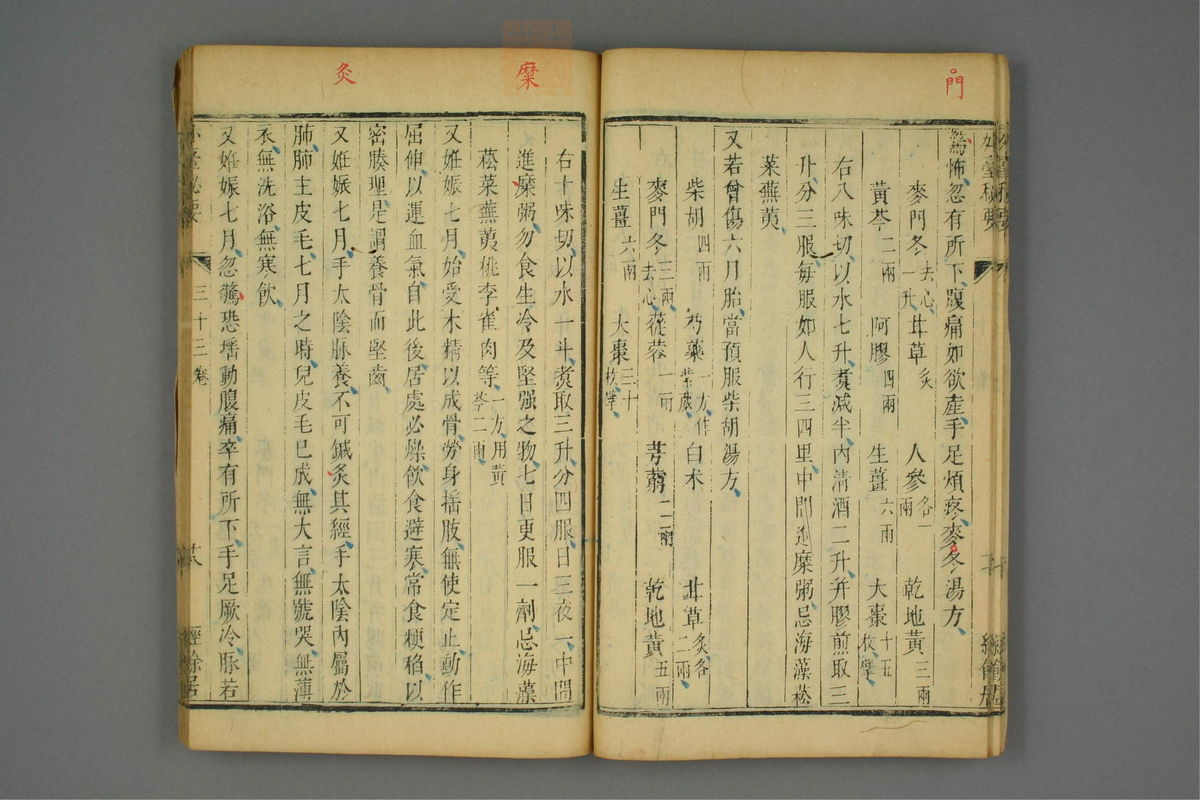 門
外臺秘要
經餘居
驚怖忽有所下腹痛如欲產手足煩疼麥冬湯方
麥門冬去心一升 甘草炙 人參各一兩 乾地黃三兩
黃芩二兩 阿膠四兩 生薑六兩 大棗十五枚擘
右八味切以水七升煑減半內清酒二升幷膠煎取三
升分三服每服如人行三四里中間進糜粥忌海藻菘
菜蕪荑
又若曾傷六月胎當預服柴胡湯方
柴胡四兩 芍藥一方作紫葳 白术 甘草炙各二兩
麥門冬三兩去心 蓯蓉一兩 芎藭二兩 乾地黃五兩
生薑六兩 大棗三十枚擘
糜
灸
右十味切以水一斗煑取三升分四服日三夜一中間
進糜粥勿食生冷及堅强之物七日更服一劑忌海藻
菘菜蕪荑桃李雀肉等一方用黃芩二兩
又妊娠七月始受木精以成骨勞身揺肢無使定止動作
屈伸以運血氣自此後居處必燥飲食避寒常食粳稻以
密腠理是謂養骨而堅齒
又妊娠七月手太陰脉養不可鍼灸其經手太陰內屬於
肺肺主皮毛七月之時兒皮毛已成無大言無號哭無薄
衣無洗浴無寒飲
又妊娠七月忽驚恐揺動腹痛卒有所下手足厥冷脉若
外臺秘要 三十三卷 廿八 經餘居